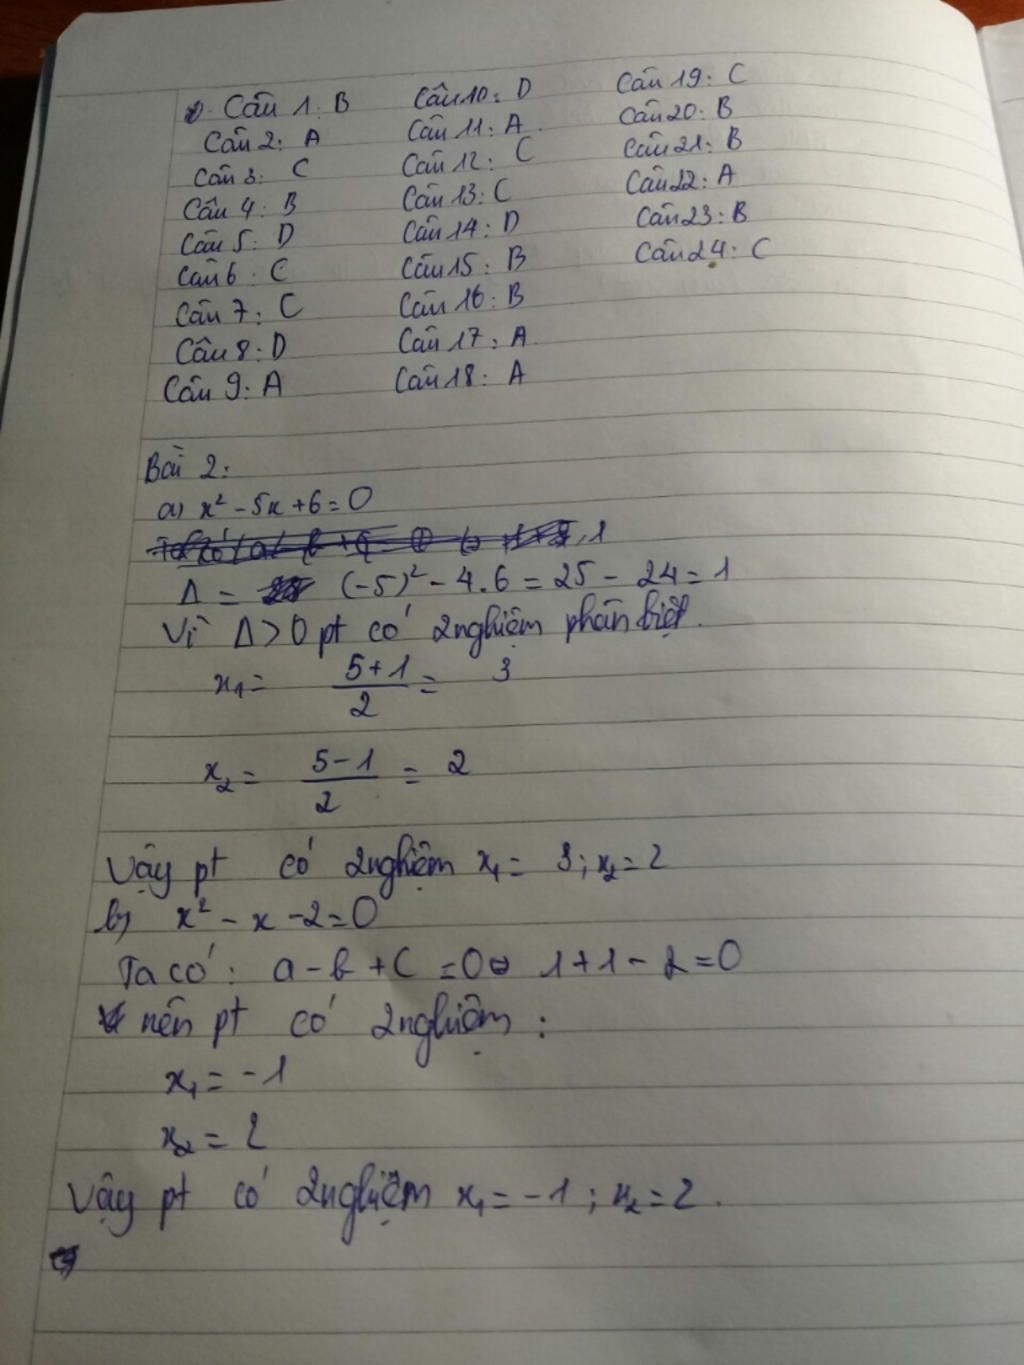 Câu 1: B
Câu 2: A
Câu 3: C
Câu 4: B
Câu 5: D
Câu 6: C
Câu 7: C
Câu 8: D
Câu 9: A
Câu 10: D
Câu 11: A
Câu 12: C
Câu 13: C
Câu 14: D
Câu 15: B
Câu 16: B
Câu 17: A
Câu 18: A
Câu 19: C
Câu 20: B
Câu 21: B
Câu 22: A
Câu 23: B
Câu 24: C
Bài 2:
a) x² - 5x + 6 = 0
Δ = (-5)² - 4.6 = 25 - 24 = 1
Vì Δ > 0 pt có 2 nghiệm phân biệt.
x₁ = (5+1)/2 = 3
x₂ = (5-1)/2 = 2
Vậy pt có 2 nghiệm x₁ = 3; x₂ = 2
b) x² - x - 2 = 0
Ta có: a - b + c = 0 ⇔ 1 + 1 - 2 = 0
nên pt có 2 nghiệm:
x₁ = -1
x₂ = 2
Vậy pt có 2 nghiệm x₁ = -1; x₂ = 2.